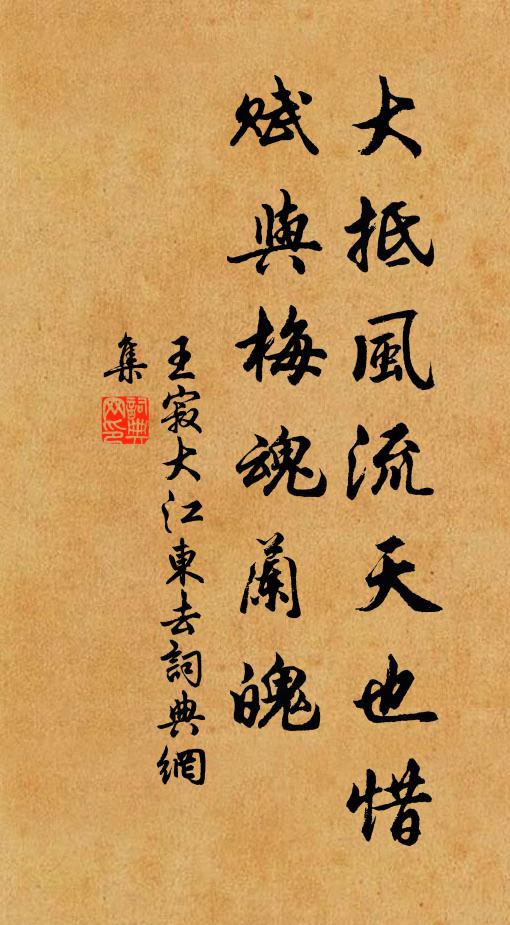 大抵風流天也惜
賦與梅魂蘭魄
王寂大江東去詞典網
集
詞典網印